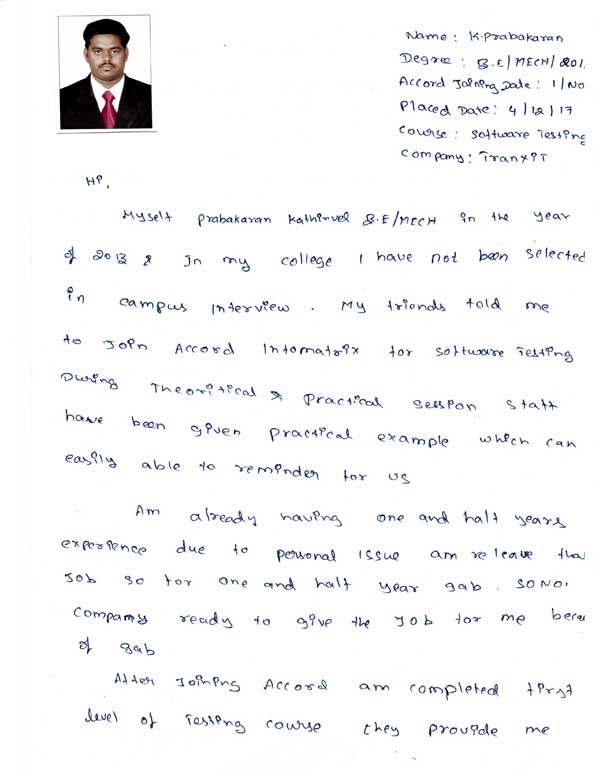 Name : K.Prabakaran
Degree : B.E/MECH/201
Accord Joining Date : 1/No
Placed Date : 4/12/17
Course : Software Testing
Company : TranxIT
Hi,
Myself Prabakaran Kathirvel B.E/MECH in the year
of 2013 & In my college I have not been selected
in campus Interview . My friends told me
to Join Accord Infomatrix for software Testing
During Theoritical & Practical Session Staff
have been given practical example which can
easily able to reminder for us
Am already having one and half years
experience due to personal issue am releave tha
Job so for one and half year gab . SO NO
Company ready to give the Job for me becau
of gab
After Joining Accord am completed first
level of Testing course they provide me